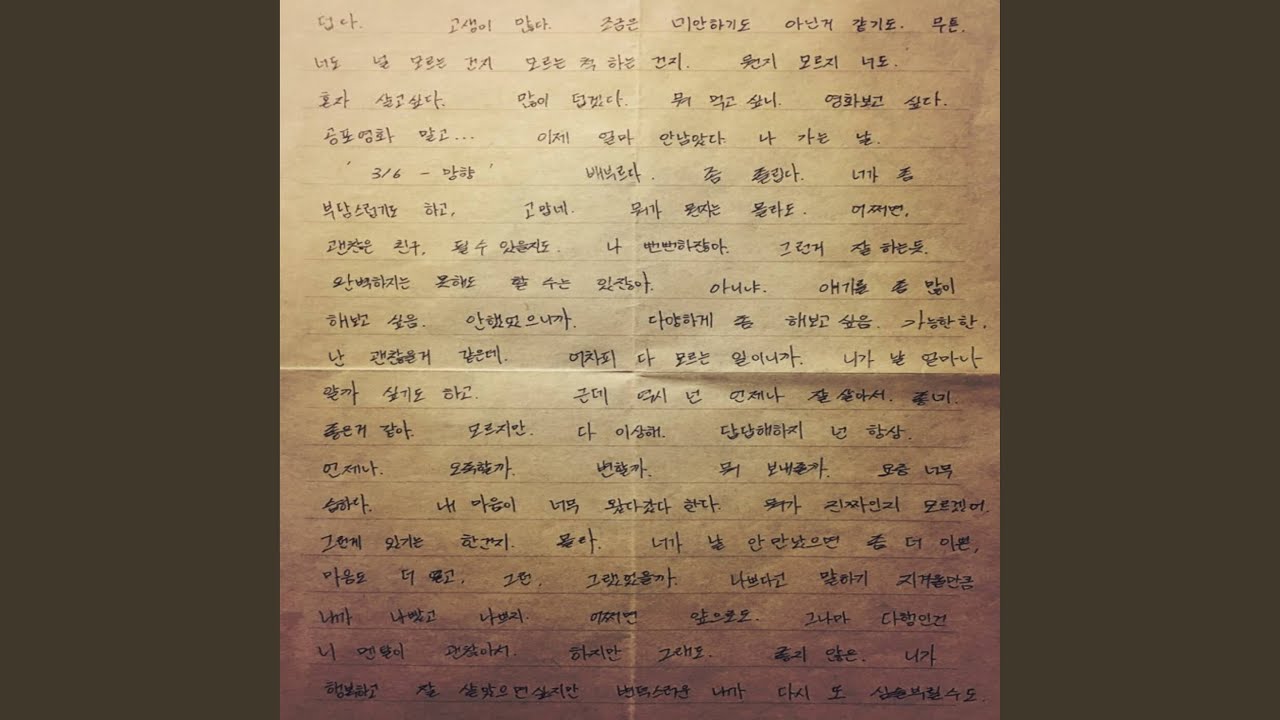 덥다. 고생이 많다. 조금은 미안하기도 아닌거 같기도. 무튼.
너도 날 모르는 건지 모르는 척 하는 건지. 뭔지 모르지 너도.
혼자 살고싶다. 많이 덥겠다. 뭐 먹고 싶니. 영화보고 싶다.
공포영화 말고... 이제 얼마 안남았다. 나 가는 날.
' 3/6 - 망향 ' 배부르다. 좀 졸립다. 너가 좀
부담스럽기도 하고, 고맙네. 뭐가 뭔지는 몰라도. 어쩌면,
괜찮은 친구, 될 수 있을지도. 나 뻔뻔하잖아. 그런거 잘 하는듯.
완벽하지는 못해도 할 수는 있잖아. 아니냐. 얘기를 좀 많이
해보고 싶음. 안했었으니까. 다양하게 좀 해보고 싶음. 가능한한.
난 괜찮을거 같은데. 어차피 다 모르는 일이니까. 니가 날 얼마나
알까 싶기도 하고. 근데 역시 넌 언제나 잘 살아서. 좋네.
좋은거 같아. 모르지만. 다 이상해. 답답해하지 넌 항상.
언제나. 오죽할까. 변할까. 뭐 보내줄까. 요즘 너무
습하다. 내 마음이 너무 왔다갔다 한다. 뭐가 진짜인지 모르겠어.
그런게 있기는 한건지. 몰라. 너가 날 안 만났으면 좀 더 이쁜,
마음도 더 넓고, 그런, 그랬었을까. 나쁘다고 말하기 지겨울만큼
내가 나빴고 나쁘지. 어쩌면 앞으로도. 그나마 다행인건
니 멘탈이 괜찮아서. 하지만 그래도. 좋지 않은. 니가
행복하고 잘 살았으면싶지만 변덕스러운 내가 다시 또 심술부릴수도.